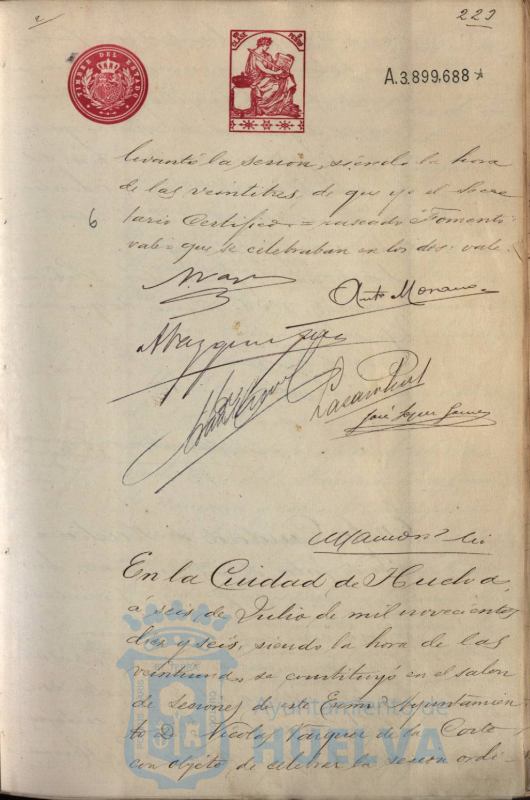 223
TIMBRE DEL ESTADO
A.3.899,688
levantó la sesion, siendo la hora
de las veintitres, de que yo el Secre
tario Certifico = raspado Fomento
vale = que se celebraban en los dos: vale
6
Antº Moreno
En la Ciudad de Huelva,
á seis de Julio de mil novecientos
diez y seis, siendo la hora de las
veintiuna, se constituyó en el salon
de sesiones de este Excmo Ayuntamien
to D. Nicolas Vazquez de la Corte
con objeto de celebrar la sesion ordi-
Ayuntamiento de
HUELVA